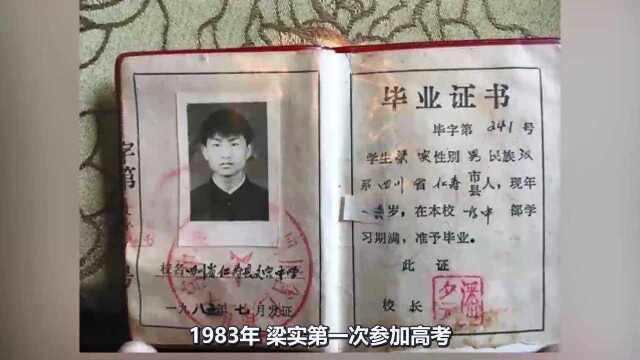 校名四川省仁寿县文宫中学
一九八 年七月发证
毕业证书
毕字第 241 号
学生梁实性别男民族汉
系四川省仁寿市县人,现年
岁,在本校 中部学
习期满,准予毕业。
此证
校长
字第
号
1983年 梁实第一次参加高考